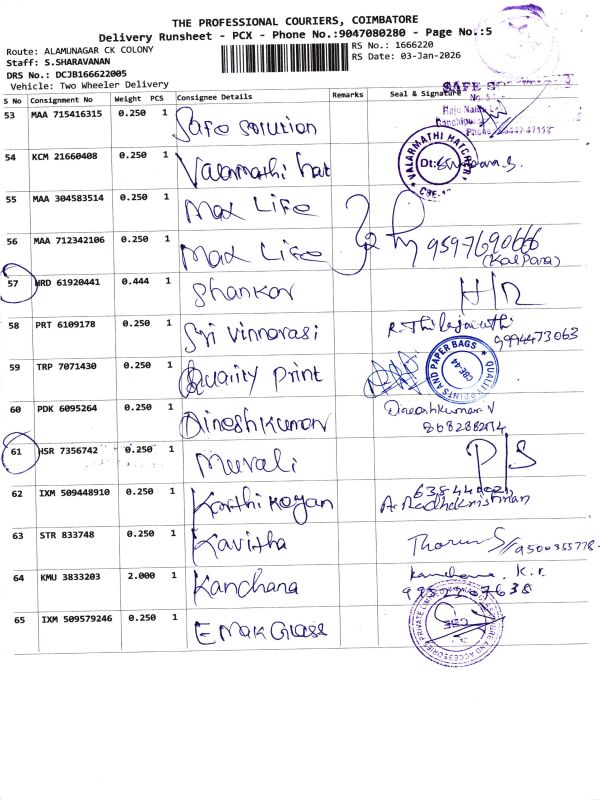 THE PROFESSIONAL COURIERS, COIMBATORE
Delivery Runsheet - PCX - Phone No.:9047080280 - Page No.:5
Route: ALAMUNAGAR CK COLONY
RS No.: 1666220
Staff: S.SHARAVANAN
RS Date: 03-Jan-2026
DRS No.: DCJB166622005
Vehicle: Two Wheeler Delivery
S No Consignment No Weight PCS Consignee Details Remarks Seal & Signature
53 MAA 715416315 0.250 1 Safe solution
54 KCM 21660408 0.250 1 Valarmathi hat VALARMATHI HATCHERI
55 MAA 304583514 0.250 1 Max Life
56 MAA 712342106 0.250 1 Max Life 9597690666
(Kalpana)
57 HRD 61920441 0.444 1 Shankar H/R
58 PRT 6109178 0.250 1 Sri Vinnarasi R.Thilagavathi
9994473063
59 TRP 7071430 0.250 1 Quality Print QUALITY PRINTS AND PAPER BAGS CBE-44
60 PDK 6095264 0.250 1 Dineshkumar Dineshkumar V
61 HSR 7356742 0.250 1 Murali P/S
62 IXM 509448910 0.250 1 Karthikeyan
A. Radhakrishnan
63 STR 833748 0.250 1 Kavitha
64 KMU 3833203 2.000 1 Kanchana Kanchana. K.r
9952207638
65 IXM 509579246 0.250 1 E Mak Glass